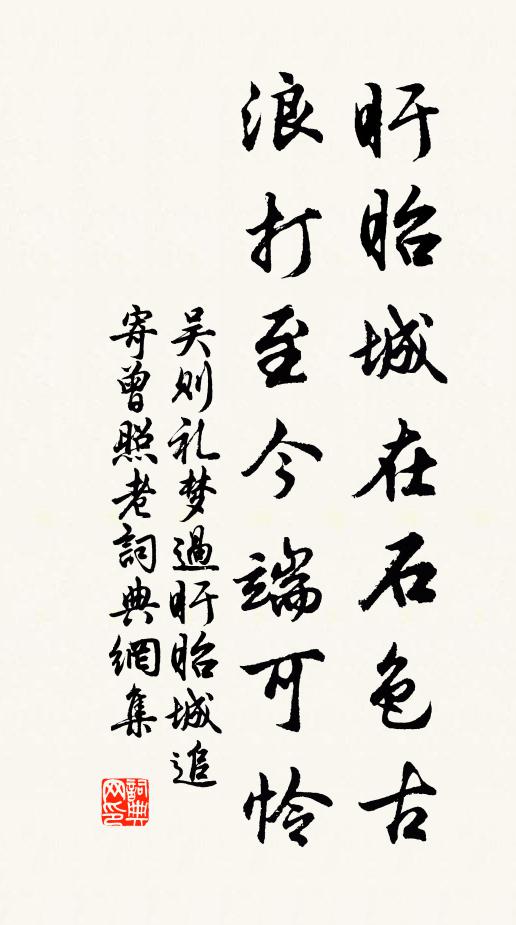 盱眙城在石色古
浪打至今端可怜
吴则礼梦過盱眙城追
寄曾照老詞典網集
詞典
网印